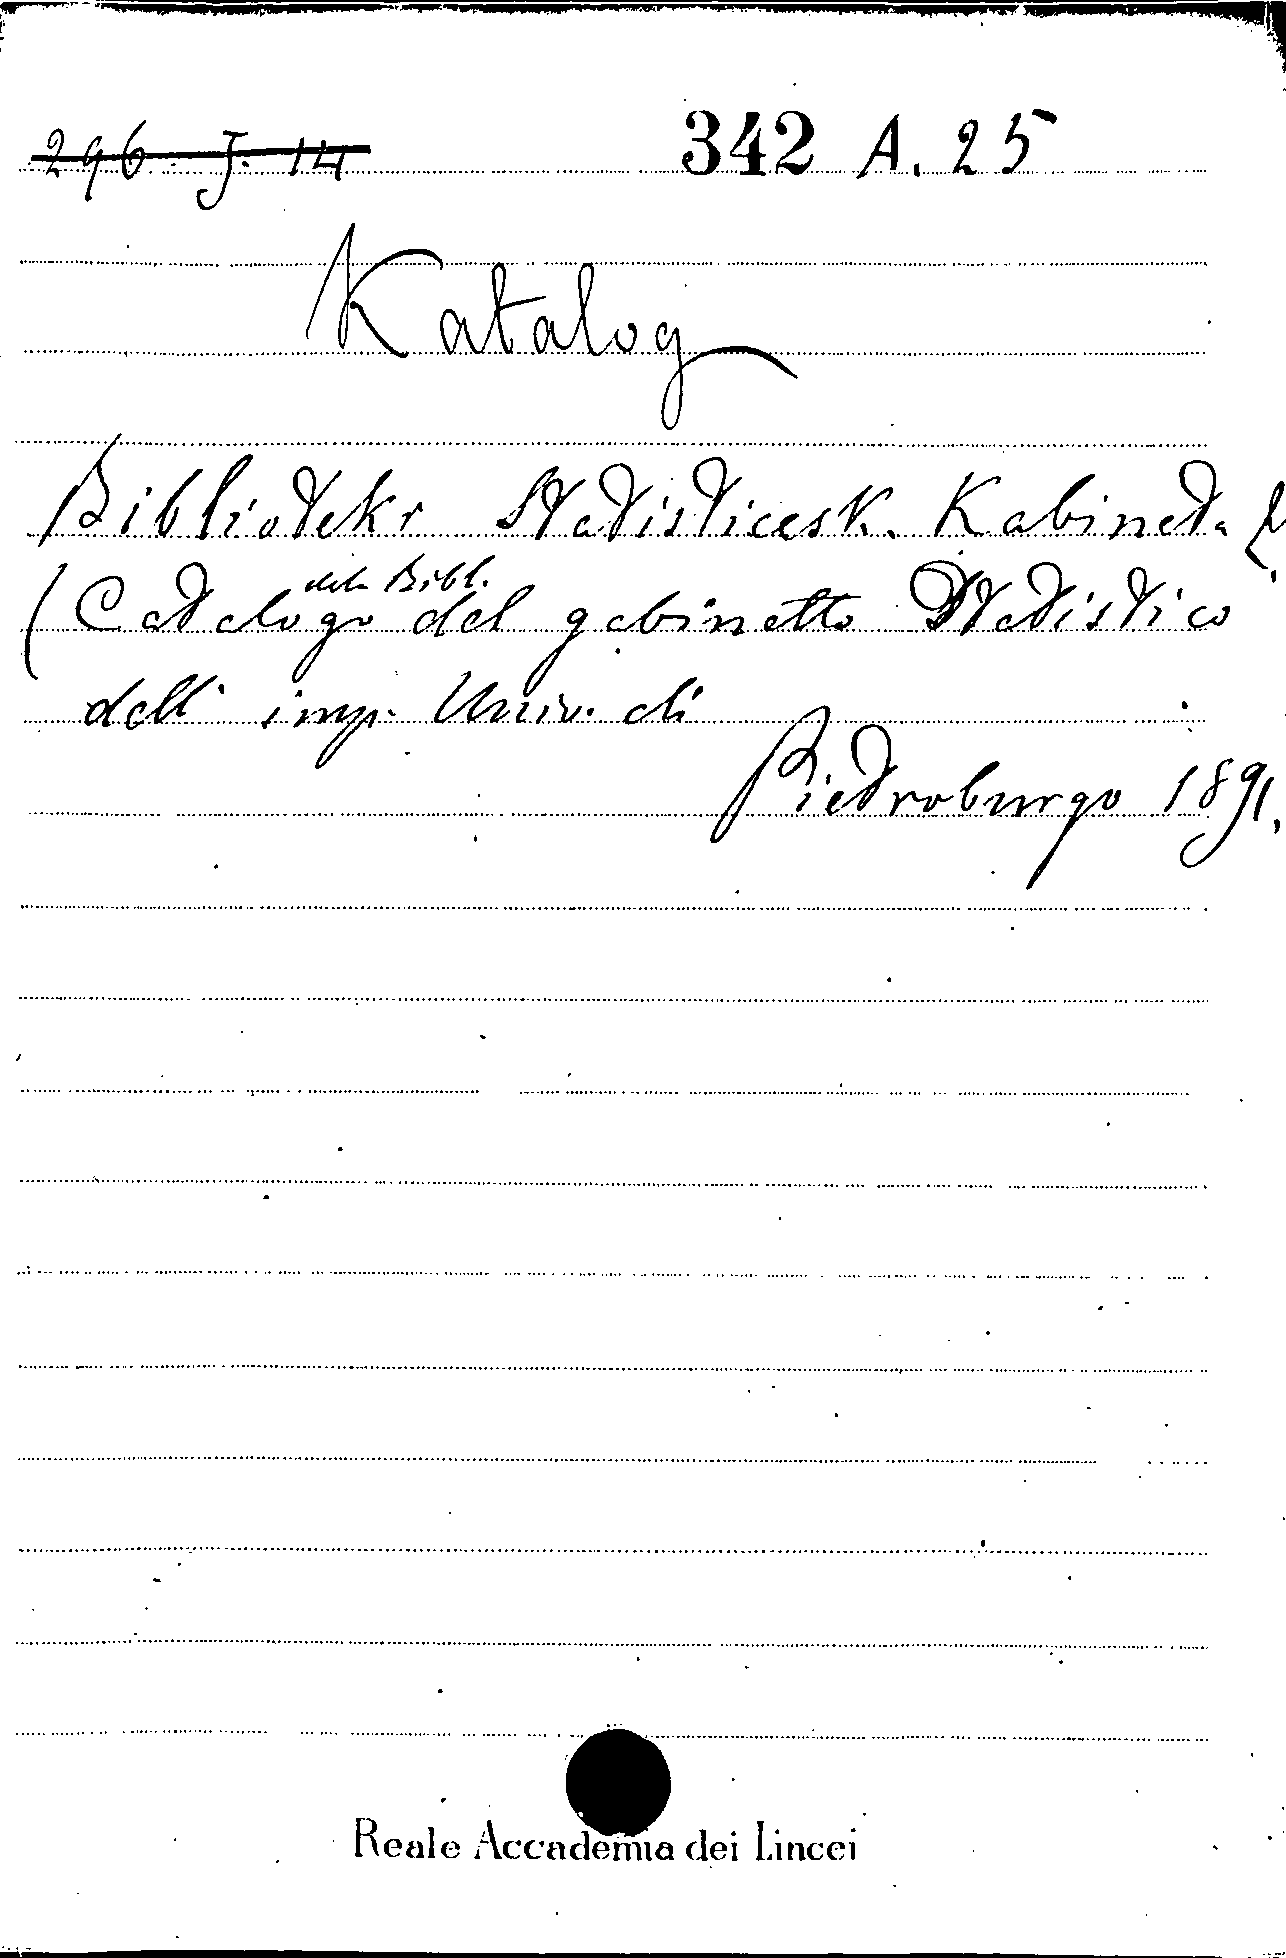 296 J. 14 342 A. 25
Katalog
Bibliotekr Statisticesk. Kabineta
(Catalogo della Bibl. del gabinetto Statistico
dell' imp. Univ. di
Pietroburgo 1891.
Reale Accademia dei Lincei